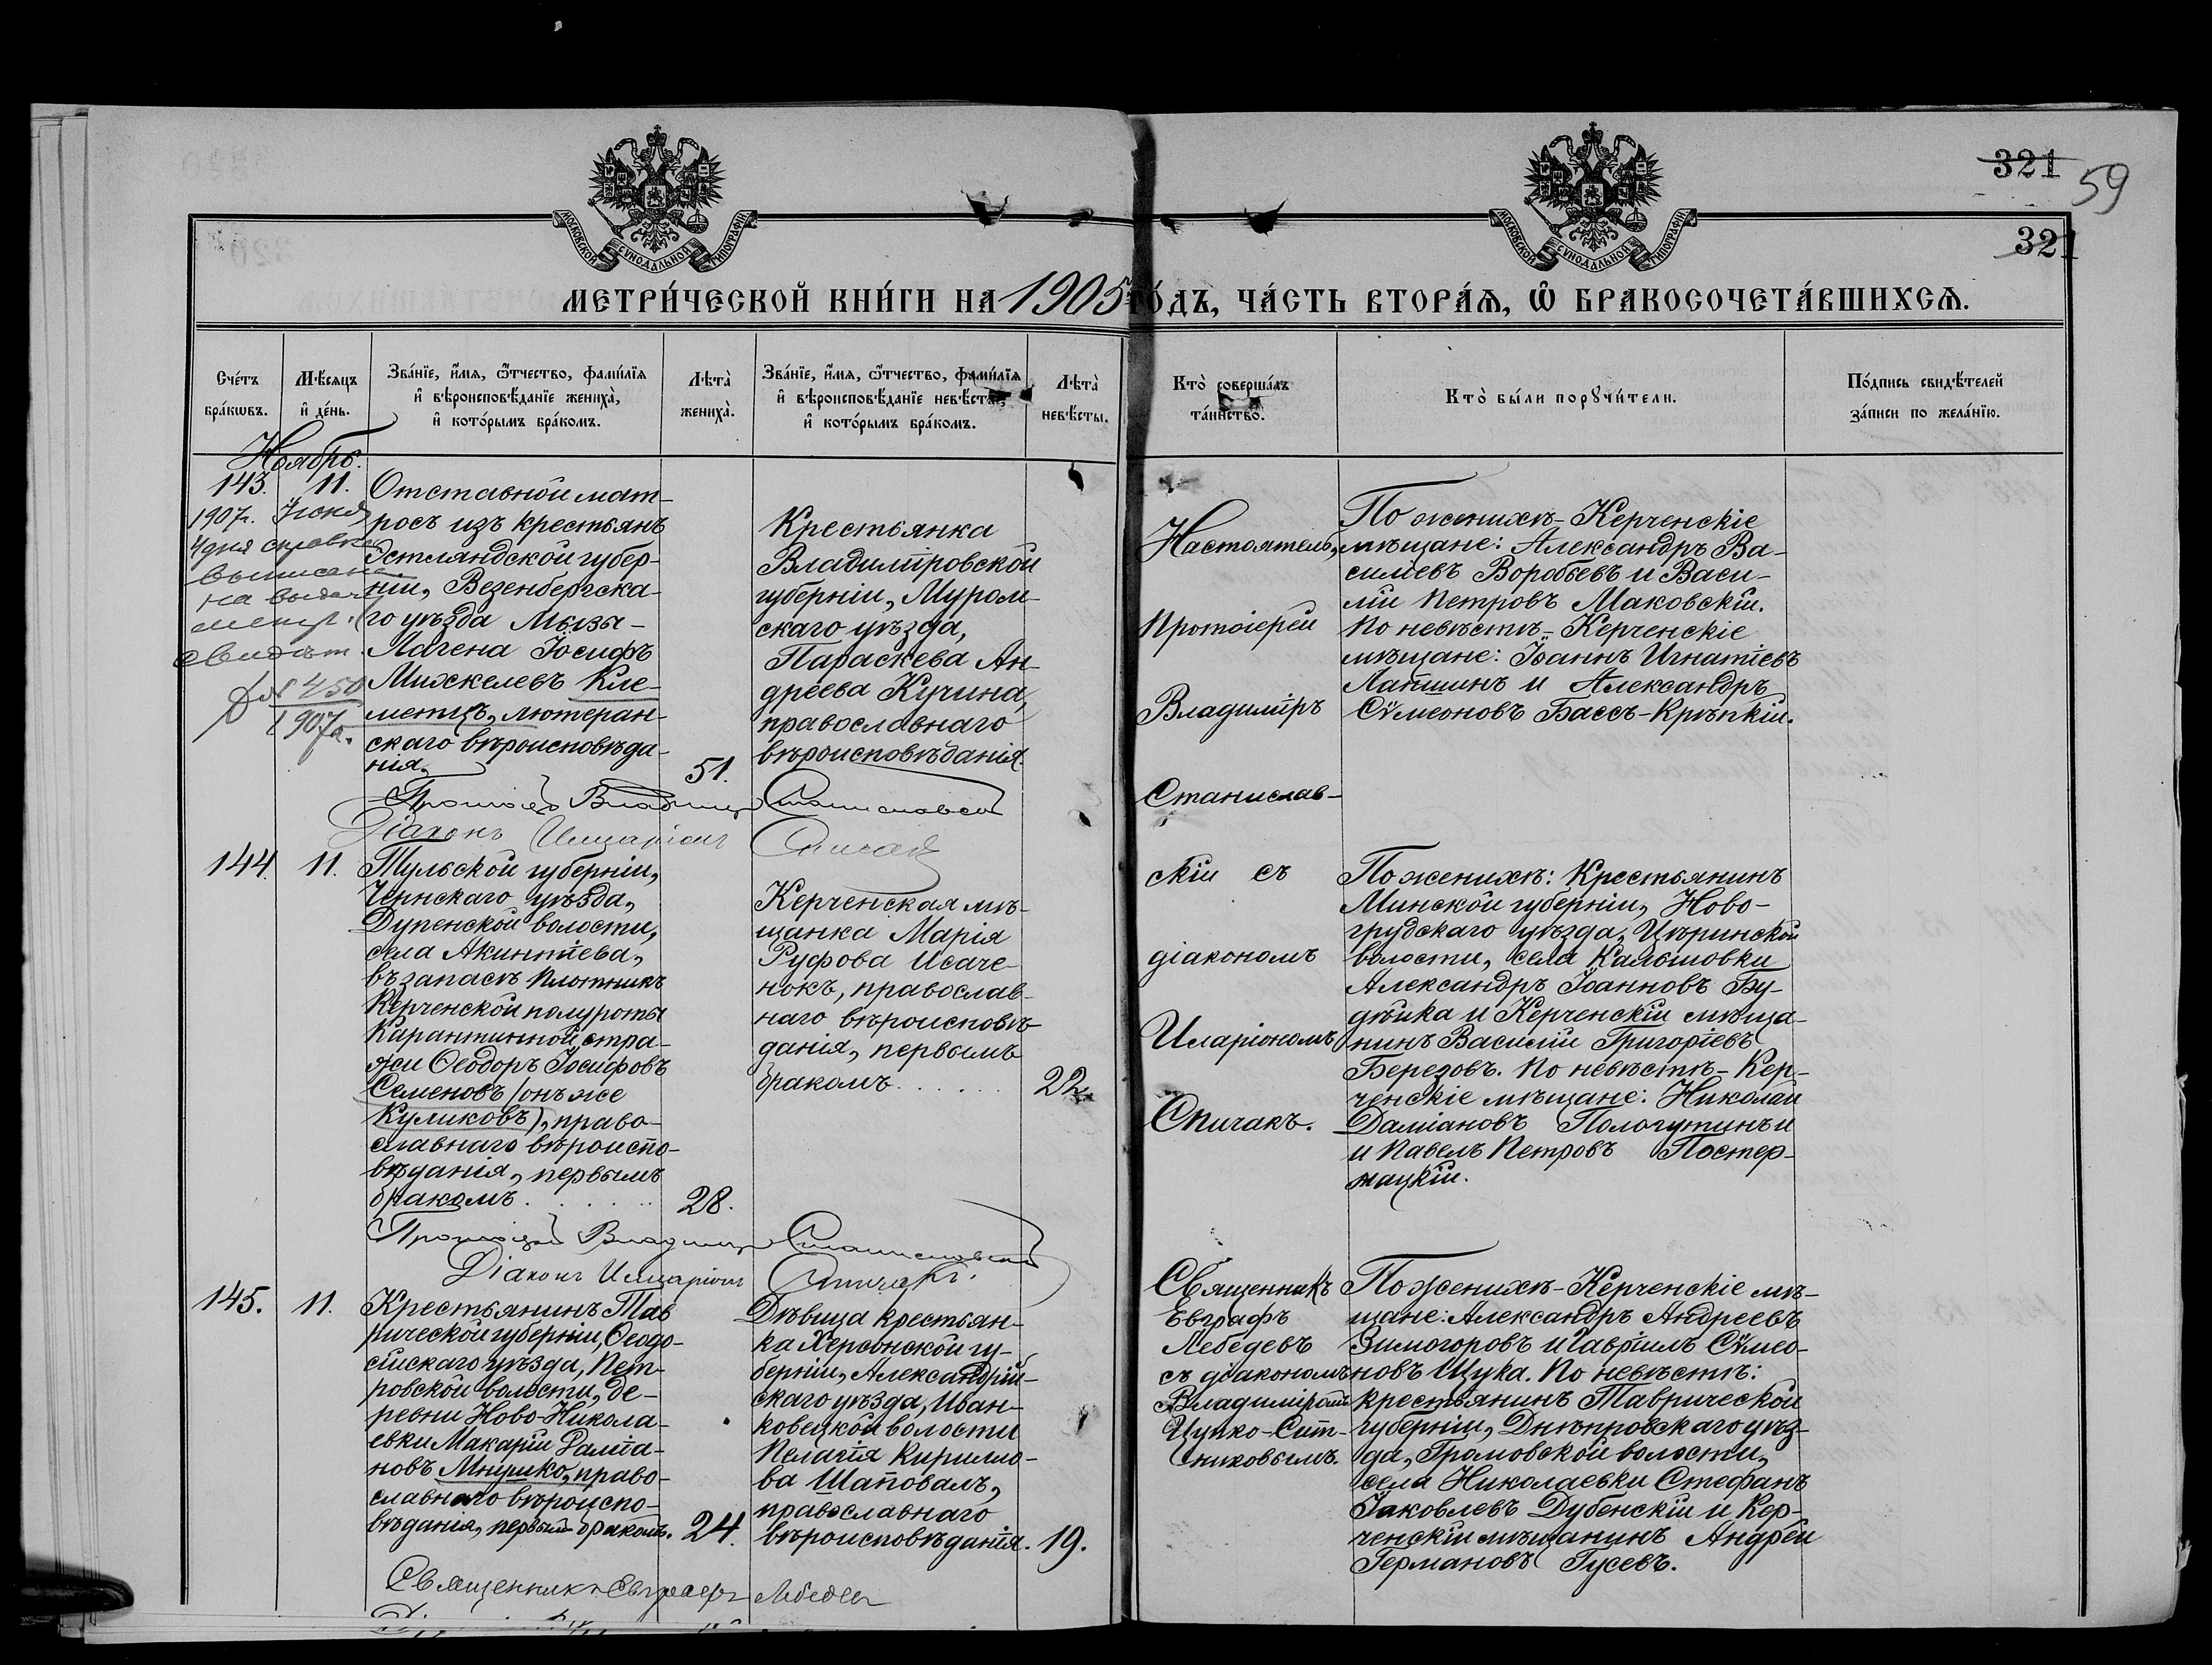 321
59
321
МОСКОВСКОЙ СУНОДАЛЬНОЙ ТИПОГРАФІИ
МОСКОВСКОЙ СУНОДАЛЬНОЙ ТИПОГРАФІИ
МЕТРИ́ЧЕСКОЙ КНИ́ГИ НА 1905 ГО́ДЪ, ЧА́СТЬ ВТОРА́Я, Ѡ БРАКОСОЧЕТА́ВШИХСЯ.
Сче́тъ
бра́кѡвъ.
Мѣ́сяцъ
и҆ де́нь.
Зва́нїе, и҆́мя, ѻ҆́тчество, фами́лїя
и҆ вѣроисповѣ́данїе жениха̀,
и҆ кото́рымъ бра́комъ.
Лѣта̀
жениха̀.
Зва́нїе, и҆́мя, ѻ҆́тчество, фами́лїя
и҆ вѣроисповѣ́данїе невѣ́сты,
и҆ кото́рымъ бра́комъ.
Лѣта̀
невѣ́сты.
Кто̀ соверша́лъ
та́инство.
Кто̀ бы́ли порꙋчи́тели.
По́дпись свидѣ́телей
за́писи по жела́нїю.
Ноябрь.
143.
11.
1907г. Іюня
4 дня справка
выписана
на выдачу
метр.
свидѣт.
№ 450
1907г.
Отставной мат-
росъ изъ крестьянъ
Эстляндской губер-
ніи, Везенбергска-
го уѣзда Мызы-
Лагена Іосифъ
Михкелевъ Кле-
ментъ, лютеран-
скаго вѣроисповѣда-
нія.
51.
Крестьянка
Владимировской
губерніи, Муром-
скаго уѣзда,
Параскева Ан-
дреева Кучина,
православнаго
вѣроисповѣданія.
Настоятель,
Протоіерей
Владиміръ
Станислав-
скій съ
діакономъ
Иларіономъ
Спичакъ.
По женихѣ- Керченскіе
мѣщане: Александръ Ва-
сильевъ Воробьевъ и Васи-
лій Петровъ Маковскій.
По невѣстѣ- Керченскіе
мѣщане: Іоаннъ Игнатіевъ
Лапшинъ и Александръ
Сѵмеоновъ Бассъ-Крѣпкій.
Протоіерей Владимиръ Станиславскій
Діаконъ Илларіонъ Спичакъ
144.
11.
Тульской губерніи,
Чернскаго уѣзда,
Дупенской волости,
села Акинтіева,
въ запасѣ Плотникъ
Керченской полуроты
Карантинной стра-
жи Ѳеодоръ Іосифовъ
Семеновъ (онъ же
Куликовъ), право-
славнаго вѣроиспо-
вѣданія, первымъ
бракомъ.
28.
Керченская мѣ-
щанка Марія
Руфова Исаче-
нокъ, православ-
наго вѣроисповѣ-
данія, первымъ
бракомъ.
22.
По женихѣ: Крестьянинъ
Минской губерніи, Ново-
грудскаго уѣзда, Цѣринской
волости, села Калышовки
Александръ Іоанновъ Бу-
дѣйка и Керченскій мѣща-
нинъ Василій Григоріевъ
Березовъ. По невѣстѣ- Кер-
ченскіе мѣщане: Николай
Даміановъ Пологутинъ и
и Павелъ Петровъ Постер-
нацкій.
Протоіерей Владимиръ Станиславскій
Діаконъ Илларіонъ Спичакъ.
145.
11.
Крестьянинъ Тав
рической губерніи, Ѳеодо-
сійскаго уѣзда, Пет-
ровской волости, де-
ревни Ново-Никола-
евки Макарій Даміа-
новъ Мнушко, право-
славнаго вѣроиспо-
вѣданія, первымъ бракомъ.
24.
Дѣвица крестьян-
ка Херсонской гу-
берніи, Александрій-
скаго уѣзда, Иван-
ковецкой волости
Пелагія Кирилло-
ва Шаповалъ,
православнаго
вѣроисповѣданія.
19.
Священникъ
Евграфъ
Лебедевъ
съ діакономъ
Владиміромъ
Цупко-Сит-
никовымъ.
По женихѣ- Керченскіе мѣ-
щане: Александръ Андреевъ
Зимогоровъ и Гавріилъ Сѵмео-
новъ Щука. По невѣстѣ:
крестьянинъ Таврической
губерніи, Днѣпровскаго уѣз-
да, Громовской волости,
села Николаевки Стефанъ
Іаковлевъ Дубенскій и Кер-
ченскій мѣщанинъ Андрей
Германовъ Гусевъ.
Священникъ Евграфъ Лебедев